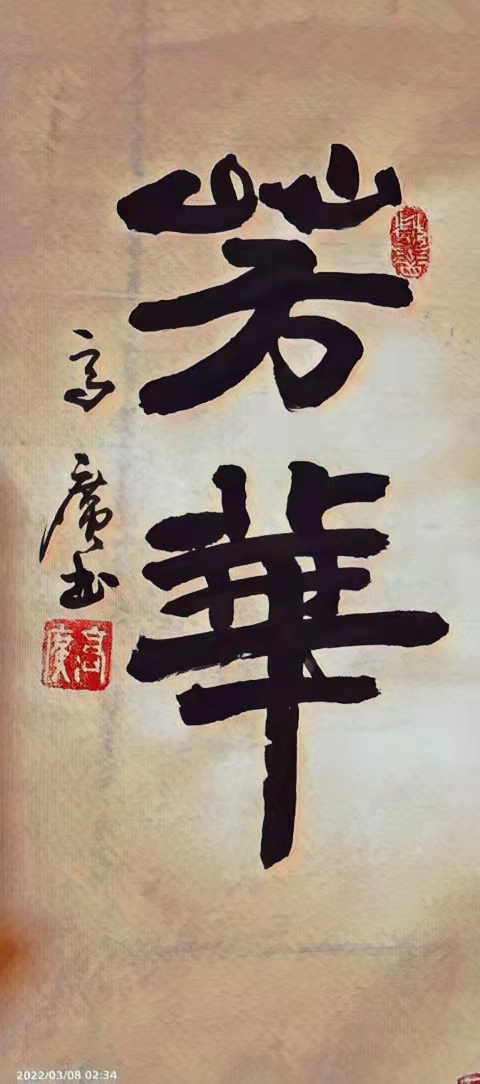 芳華
高廣书
高廣
2022/03/08 02:34